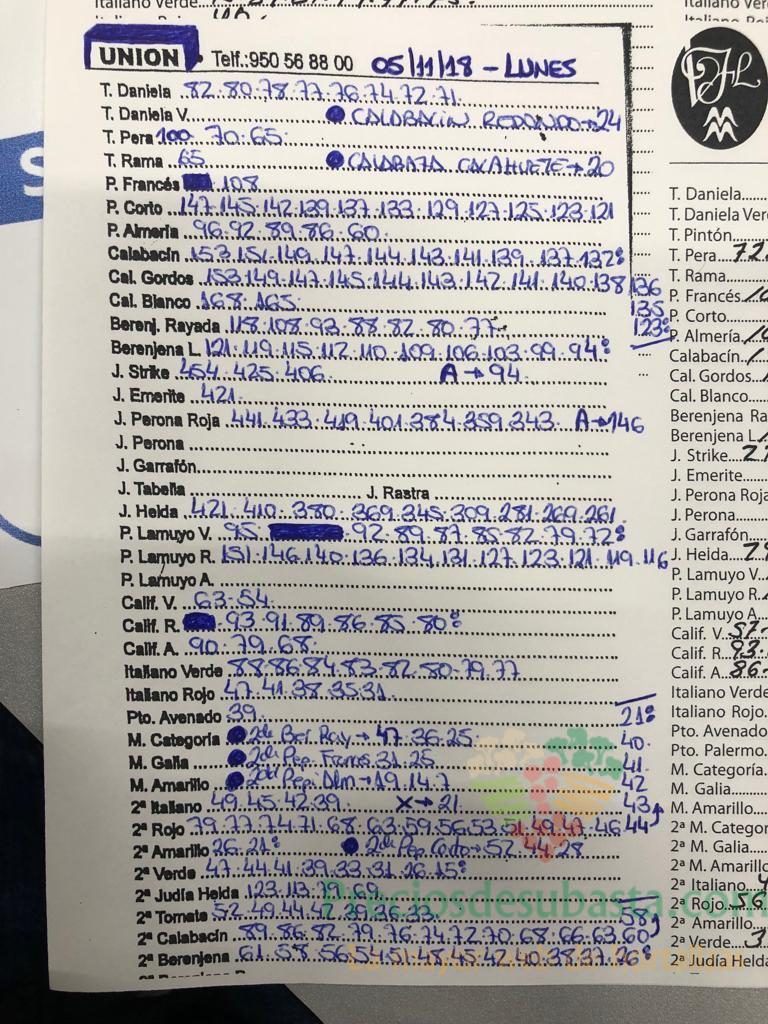 Italiano Verde
UNION Telf.:950 56 88 00 05/11/18 - LUNES
T. Daniela 82.80.78.77.76.74.72.71.
T. Daniela V. CALABACIN REDONDO→24
T. Pera 100. 70.65.
T. Rama 65 CALABAZA CACAHUETE→20
P. Francés 108
P. Corto 147.145.142.139.137.133.129.127.125.123.121
P. Almería 96.92.89.86.60.
Calabacín 153.151.149.147.144.143.141.139.137.132:
Cal. Gordos 153.149.147.145.144.143.142.141.140.138 136
135
Cal. Blanco 168.165. 123:
Berenj. Rayada 118.108.93.88.82.80.77.
Berenjena L. 121.119.115.112.110.109.106.103.99.94:
J. Strike 454.425.406 A→94.
J. Emerite 421
J. Perona Roja 441.433.419.401.384.359.343. A→146
J. Perona
J. Garrafón
J. Tabella J. Rastra
J. Helda 421.410.380.369.345.309.281.269.261
P. Lamuyo V. 95. 92.89.87.85.82.79.72:
P. Lamuyo R. 151.146.140.136.134.131.127.123.121.119.116
P. Lamuyo A.
Calif. V. 63.54
Calif. R. 93.91.89.86.85.80:
Calif. A. 90.79.68.
Italiano Verde 88.86.84.83.82.80.79.77
Italiano Rojo 47.41.38.35.31.
Pto. Avenado 39 21:
M. Categoría 2da Ber Ray→47.36.25. 40.
M. Galia 31.25 41.
M. Amarillo →19.14.7 42
2ª Italiano 49.45.42.39. X→21. 43
2ª Rojo 79.77.74.71.68.63.59.56.53.51.49.47.46.44
2ª Amarillo 26.21: →52.44.28
2ª Verde 47.44.41.39.33.31.26.15:
2ª Judía Helda 123.113.79.69.
2ª Tomate 52.49.44.42.39.36.33. 58
2ª Calabacín 89.86.82.79.76.74.72.70.68.66.63.60
2ª Berenjena 61.58.56.54.51.48.45.42.40.38.37.26:
Preciosdesubasta.com
T. Daniela
T. Daniela Ver
T. Pintón
T. Pera 72
T. Rama
P. Francés
P. Corto
P. Almería
Calabacín
Cal. Gordos
Cal. Blanco
Berenjena Ra
Berenjena L.
J. Strike
J. Emerite
J. Perona Roja
J. Perona
J. Garrafón
J. Heida
P. Lamuyo V.
P. Lamuyo R.
P. Lamuyo A.
Calif. V. 57
Calif. R. 93
Calif. A. 86
Italiano Verde
Italiano Rojo
Pto. Avenado
Pto. Palermo
M. Categoría
M. Galia
M. Amarillo
2ª M. Categor
2ª M. Galia
2ª M. Amarillo
2ª Italiano
2ª Rojo 56
2ª Amarillo
2ª Verde 3
2ª Judía Helda